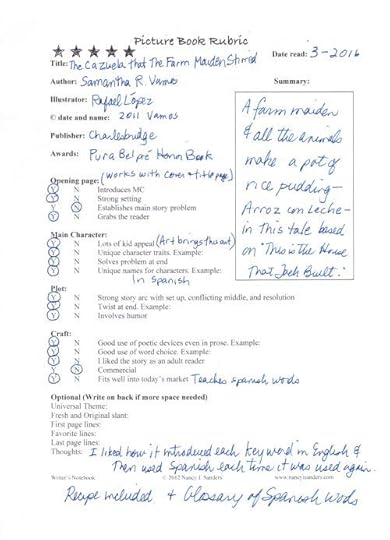 Picture Book Rubric
Date read: 3-2016
Title: The Cazuela that The Farm Maiden Stirred
Author: Samantha R. Vamos
Summary:
Illustrator: Rafael López
© date and name: 2011 Vamos
Publisher: Charlesbridge
Awards: Pura Belpré Honor Book
A farm maiden
& all the animals
make a pot of
rice pudding—
Arroz con Leche—
in this tale based
on "This is the House
That Jack Built."
Opening page: (works with cover & title page)
Y N Introduces MC
Y N Strong setting
Y N Establishes main story problem
Y N Grabs the reader
Main Character:
Y N Lots of kid appeal (Art brings this out)
Y N Unique character traits. Example:
Y N Solves problem at end
Y N Unique names for characters. Example:
In Spanish
Plot:
Y N Strong story arc with set up, conflicting middle, and resolution
Y N Twist at end. Example:
Y N Involves humor
Craft:
Y N Good use of poetic devices even in prose. Example:
Y N Good use of word choice. Example:
Y N I liked the story as an adult reader
Y N Commercial
Y N Fits well into today's market Teaches spanish words
Optional (Write on back if more space needed)
Universal Theme:
Fresh and Original slant:
First page lines:
Favorite lines:
Last page lines:
Thoughts: I liked how it introduced each key word in English &
Then used Spanish each time it was used again.
Writer's Notebook © 2012 Nancy I. Sanders www.nancyisanders.com
Recipe included + Glossary of Spanish Words